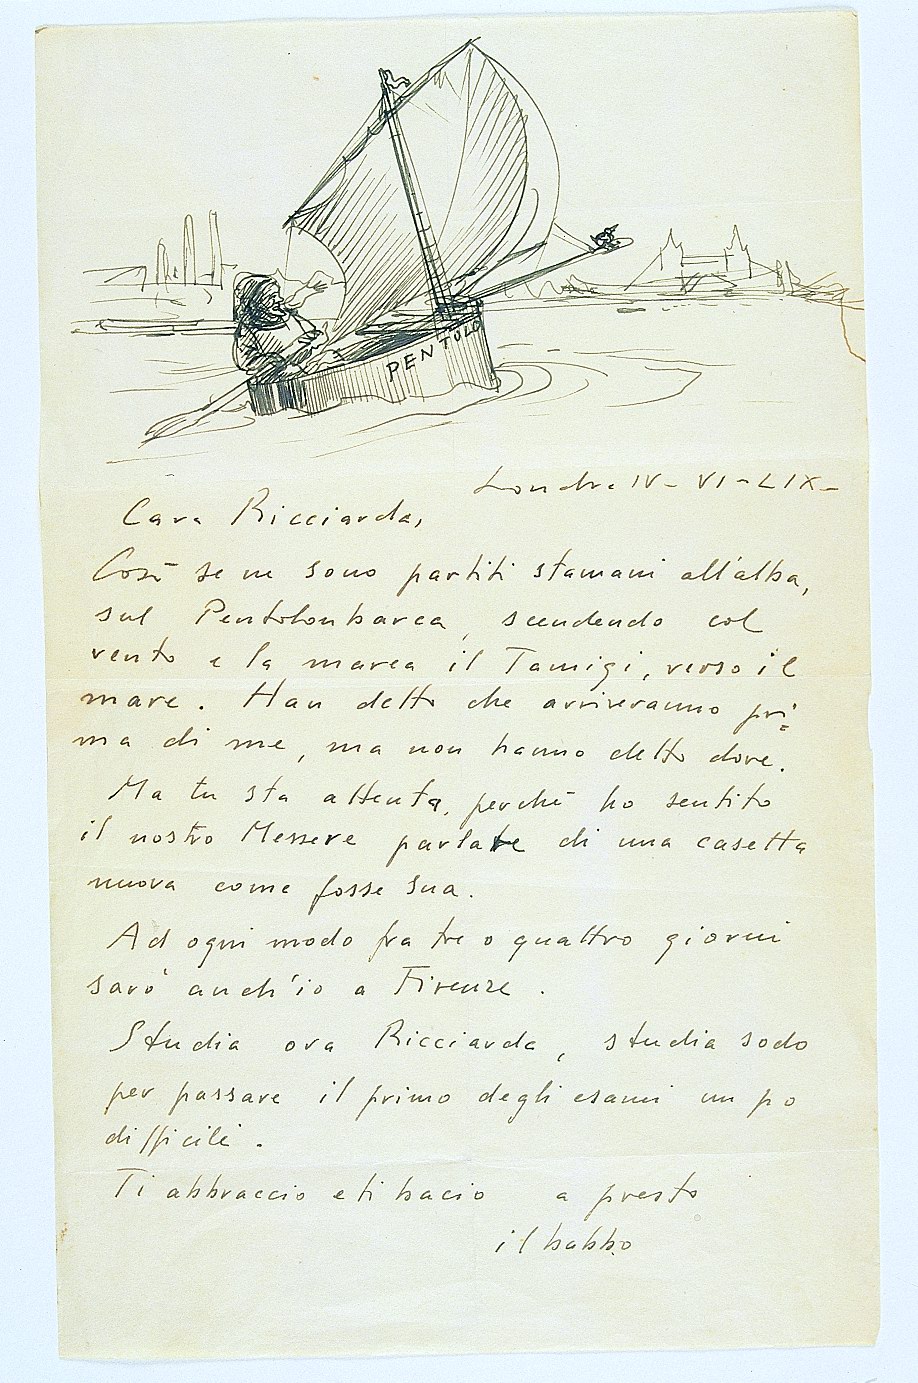 PENTOLO
Londra IV - VI - LIX -
Cara Ricciarda,
Così se ne sono partiti stamani all'alba,
sul Pentolonbarca, scendendo col
vento e la marea il Tamigi, verso il
mare. Han detto che arriveranno pri=
ma di me, ma non hanno detto dove.
Ma tu sta attenta, perchè ho sentito
il nostro Messere parlare di una casetta
nuova come fosse sua.
Ad ogni modo fra tre o quattro giorni
sarò anch'io a Firenze.
Studia ora Ricciarda, studia sodo
per passare il primo degli esami un po
difficili.
Ti abbraccio e ti bacio a presto
il babbo